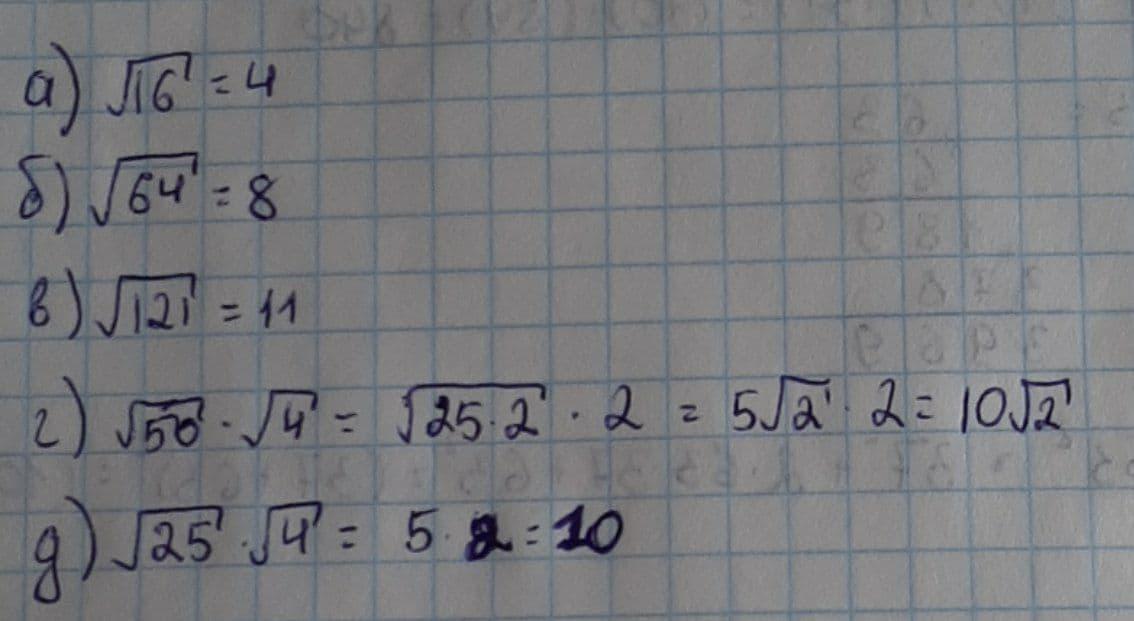 а) √16 = 4
б) √64 = 8
в) √121 = 11
г) √50 · √4 = √25·2 · 2 = 5√2 · 2 = 10√2
д) √25 · √4 = 5 · 2 = 10